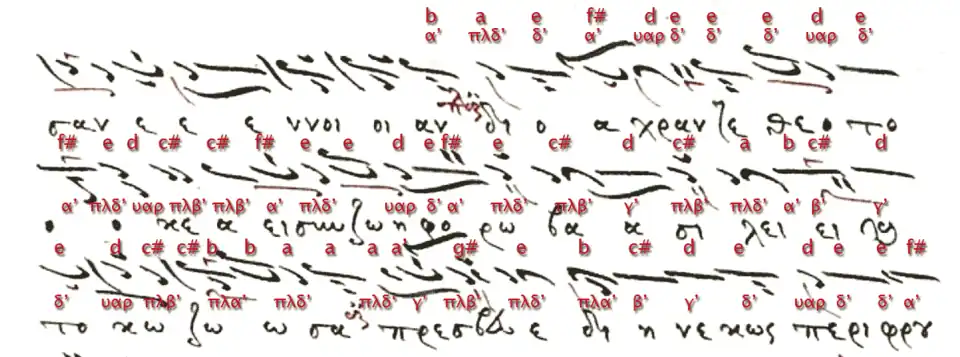 b a e f# d e e e d e
α' πλδ' δ' α' υαρ δ' δ' δ' υαρ δ'
σαν ε ε ε ννοι οι αν δι ο α χραν ζε θε ο το
f# e d c# c# f# e e d e f# e c# d c# a b c# d
α' πλδ' υαρ πλβ' πλβ' α' πλδ' υαρ δ' α' πλδ' πλβ' γ' πλβ' πλδ' α' β' γ'
ο ο κε α ζω η φο ρω βα α σι λει ει
e d c# c# b b a a a a g# e b c# d e d e e f#
δ' υαρ πλβ' πλα' πλδ' πλδ' γ' πλβ' πλδ' πλα' β' γ' δ' υαρ δ' δ' α'
το κω ζω ω σα πρεσβω ε δη η νε κως περι φρυ